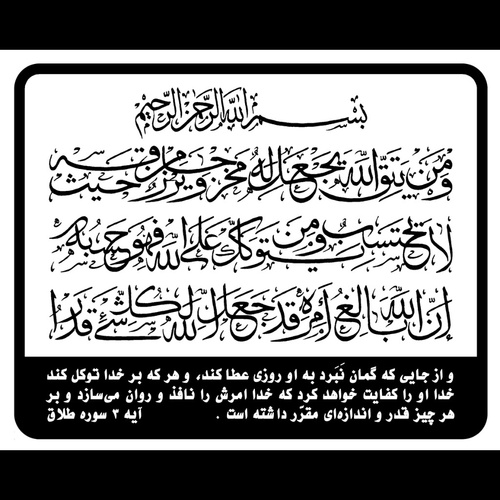 بسم الله الرحمن الرحیم
ومن یتق الله یجعل له مخرجا ویرزقه من حیث
لا یحتسب ومن یتوکل علی الله فهو حسبه
إن الله بالغ أمره قد جعل الله لکل شیء قدرا
و از جایی که گمان نَبَرد به او روزی عطا کند، و هر که بر خدا توکل کند
خدا او را کفایت خواهد کرد که خدا امرش را نافذ و روان می‌سازد و بر
هر چیز قدر و اندازه‌ای مقرّر داشته است . آیه ۳ سوره طلاق